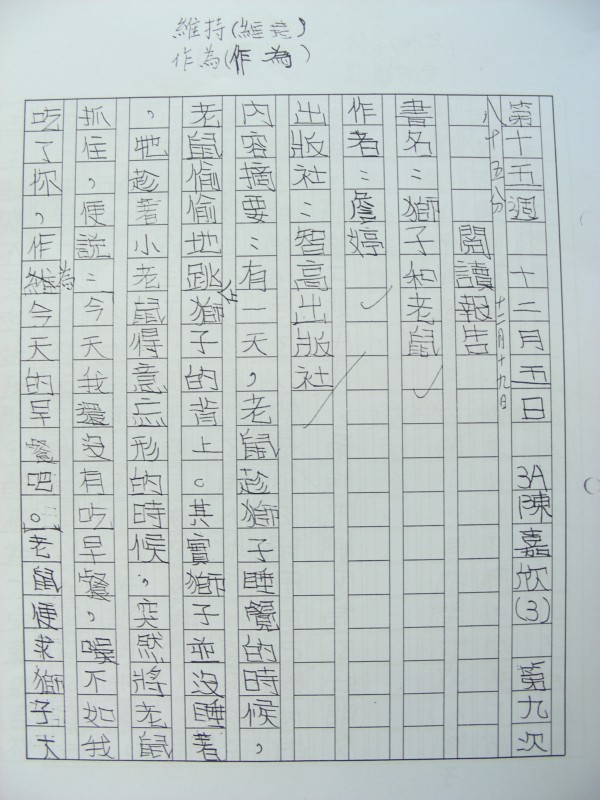 維持
作為(作為)
第十五週 十二月五日 3A陳嘉欣(3) 第九次
八十五分 十二月十九日
閱讀報告
書名：獅子和老鼠
作者：詹婷
出版社：智高出版社
內容摘要：有一天，老鼠趁獅子睡覺的時候，
老鼠偷偷地跳獅子的背上。其實獅子並沒睡著
，牠趁著小老鼠得意忘形的時候，突然將老鼠
抓住，便說：「今天我還沒有吃早餐，不如我
吃了你，作為今天的早餐吧。」老鼠便求獅子大